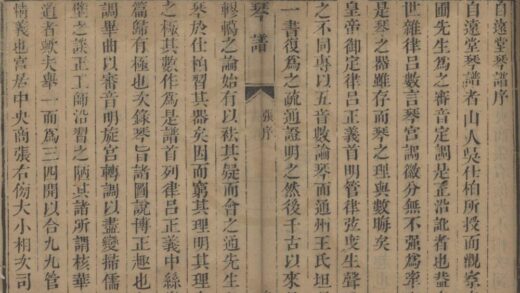 自遠堂琴譜序
自遠堂琴譜者山人吳仕柏所授而觀察
圃先生爲之審音定調是沿訛者也蓋
世雜律呂數言琴宮調徽分無不强爲牽
是琴之器雖存而琴之理與數晦矣
皇帝御定律呂正義首明管律弦度生聲
之不同專以五音數論琴而通州王氏坦
一書復爲之疏通證明之然後千古以來
琴譜
張序
轇轕之論始有以袪其疑而會之通先生
琴於仕柏習其器矣因而窮其理明其理
之極其數作爲是譜首列律呂正義中絲
篇歸有極也次錄琴旨諸圖說博正趣也
調畢曲以審音明旋宮轉調以盡變掃儒
之謬正工師沿習之陋其諸所謂核華
道者歟夫舉一而爲三四開以合九九管
情義也宮居中央商張右傍大小相次司